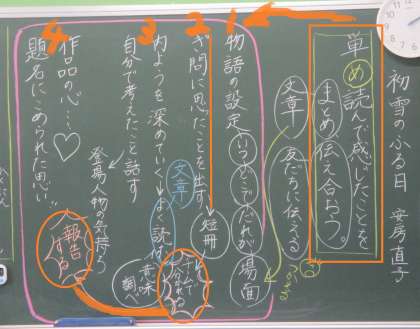 初雪のふる日　安房直子
単め読んで感じたことを
まとめ、伝え合おう。
文章
友だちに伝える
1
物語の設定 いつ どこで だれが 場面
2
ぎ問に思ったことを出す
短冊
3
内ようを深めていく
よく読む
文章
意味
調べ
自分で考えたこと話す
登場人物の気持ち
4
作品の心…♡
題名にこめられた思い…
報告する